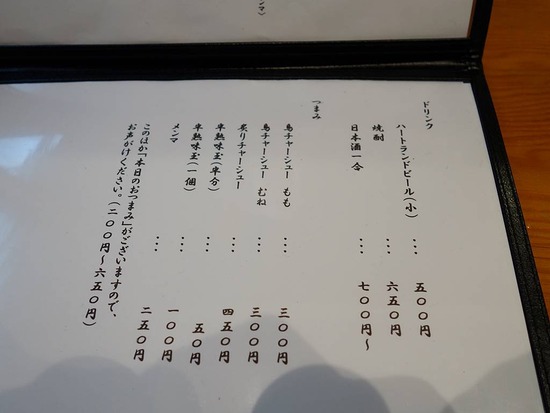 ドリンク
ハートランドビール(小) … 五〇〇円
焼酎 … 六五〇円
日本酒一合 … 七〇〇円〜
つまみ
鳥チャーシュー もも … 三〇〇円
鳥チャーシュー むね … 三〇〇円
炙りチャーシュー … 四五〇円
半熟味玉(半分) … 五〇円
半熟味玉(一個) … 一〇〇円
メンマ … 二五〇円
このほか「本日のおつまみ」がございますので、
お声がけください。(二〇〇円〜六五〇円)